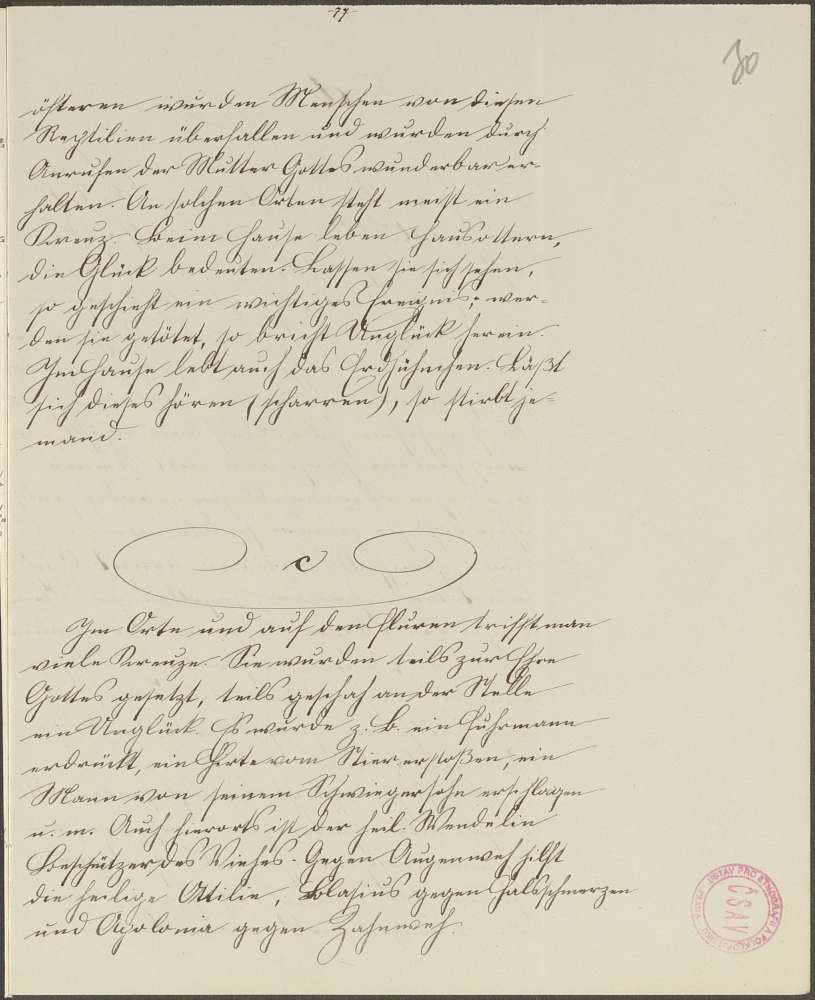 -77-
30
öfteren wurden Menschen von diesen
Reptilien überfallen und wurden durch
Anrufen der Mutter Gottes wunderbar er-
halten. An solchen Orten steht meist ein
Kreuz. Beim Hause leben Hausottern,
die Glück bedeuten. Lassen sie sich sehen,
so geschieht ein wichtiges Ereignis; wer-
den sie getötet, so bricht Unglück herein.
Im Hause lebt auch das Erdhühnchen. Läßt
sich dieses hören (scharren), so stirbt je-
mand.
c
Im Orte und auf den Fluren trifft man
viele Kreuze. Sie wurden teils zur Ehre
Gottes gesetzt, teils geschah an der Stelle
ein Unglück. Es wurde z. B. ein Fuhrmann
erdrückt, ein Hirte vom Stier erstoßen, ein
Mann von seinem Schwiegersohn erschlagen
u. m. Auch hierorts ist der heil. Wendelin
Beschützer des Viehes. Gegen Augenweh hilft
die heilige Ottilie, Blasius gegen Halsschmerzen
und Apolonia gegen Zahnweh.
ČSAV
ÚSTAV PRO ETNOGRAFII A FOLKLORISTIKU